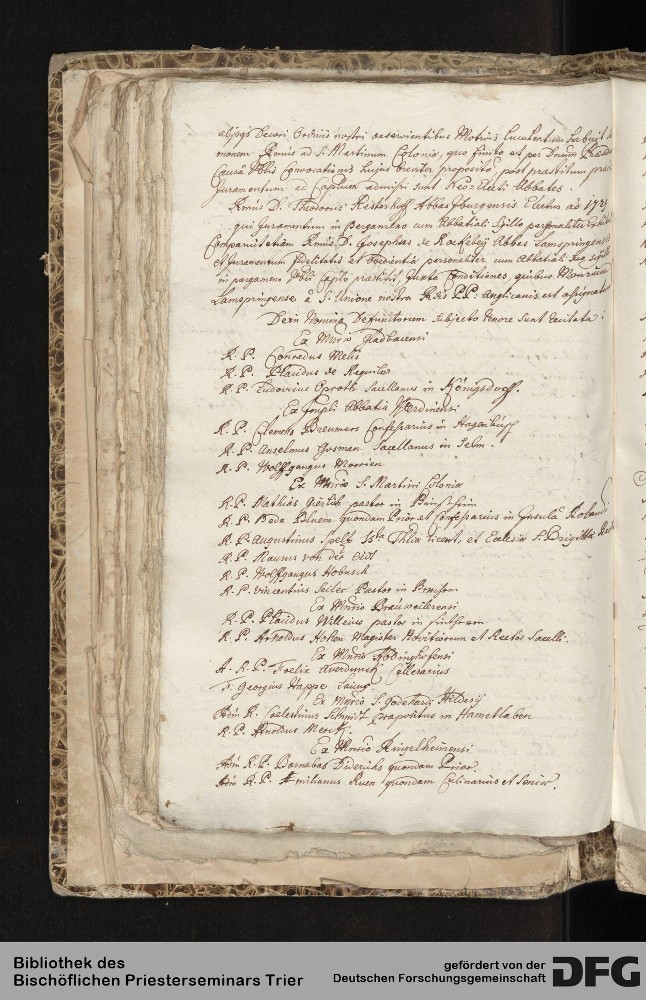 alijsq3 Decori Ordinis nostri deservientibus Motivis luculentum habuit
monem Rmus ad S. Martinum Coloniae, quo finito et per Dnum
Causa Vblis Convocationis hujus breviter proposita, post praestitum
Juramentum ad Caplum admissi sunt Neo-Electi Abbates.
Rmus D. Theodorus Abbas Electus ao 17
qui Juramentum in Pergameno cum Abbatiali Sigillo personaliter
Comparuit etiam Rmus D. Josephus de Rockeleÿ Abbas Lamspringensis
et Juramentum fidelitatis et obedientiae personaliter cum Abbatiali
in pargameno Vbli Caplo praestitit, juxta Conditiones, quibus
Lamspringense a S. Unione nostra Rdis P.P. Anglicanis est assignatum
Dein Nomina Defunctorum subjecto tenore sunt recitata.
Ex Murio Gladbacensi
R. P. Conradus Melis
R. P. Placidus de
R. P. Ludovicus Oproth Sacellanus in Königsdorff.
Ex Impli Abbatia Werdinensi
R. P. Clemens Breumers Confessarius in
R. P. Anselmus Gosman Sacellanus in Selm.
R. P. Wolffgangus Morrien
Ex Murio S. Martini Coloniae
R. P. Mathias pastor in
R. P. Beda Bluem quondam Prior et Confessarius in Insula Rolandi
R. P. Augustinus Spelt Ssta Thlia licent. et Ecclesiae S. Brigittae
R. P. Maurus von der
R. P. Wolffgangus Hobusch
R. P. Vincentius Seiler Pastor in
Ex Murio Brauweilerensi
R. P. Placidus Willeius pastor in Sintheren
R. P. Arnoldus Holten Magister Novitiorum et Rector Sacelli.
Ex Murio Abdinghofensi
A. R. P. Foelix Averdunck Cellerarius
Fr. Georgius Happe Laicus
Ex Murio S. Godehardi Hildesÿ
Adm R. Coelestinus Schmidt praepositus in Hamersleben
R. P. Arnoldus Merck.
Ex Murio Ringelheimensi
Adm R. P. Barnabas Dideriks quondam Prior
Adm R. P. Æmilianus Kuen quondam Culinarius et Senior.
Bibliothek des
Bischöflichen Priesterseminars Trier
gefördert von der
Deutschen Forschungsgemeinschaft
DFG